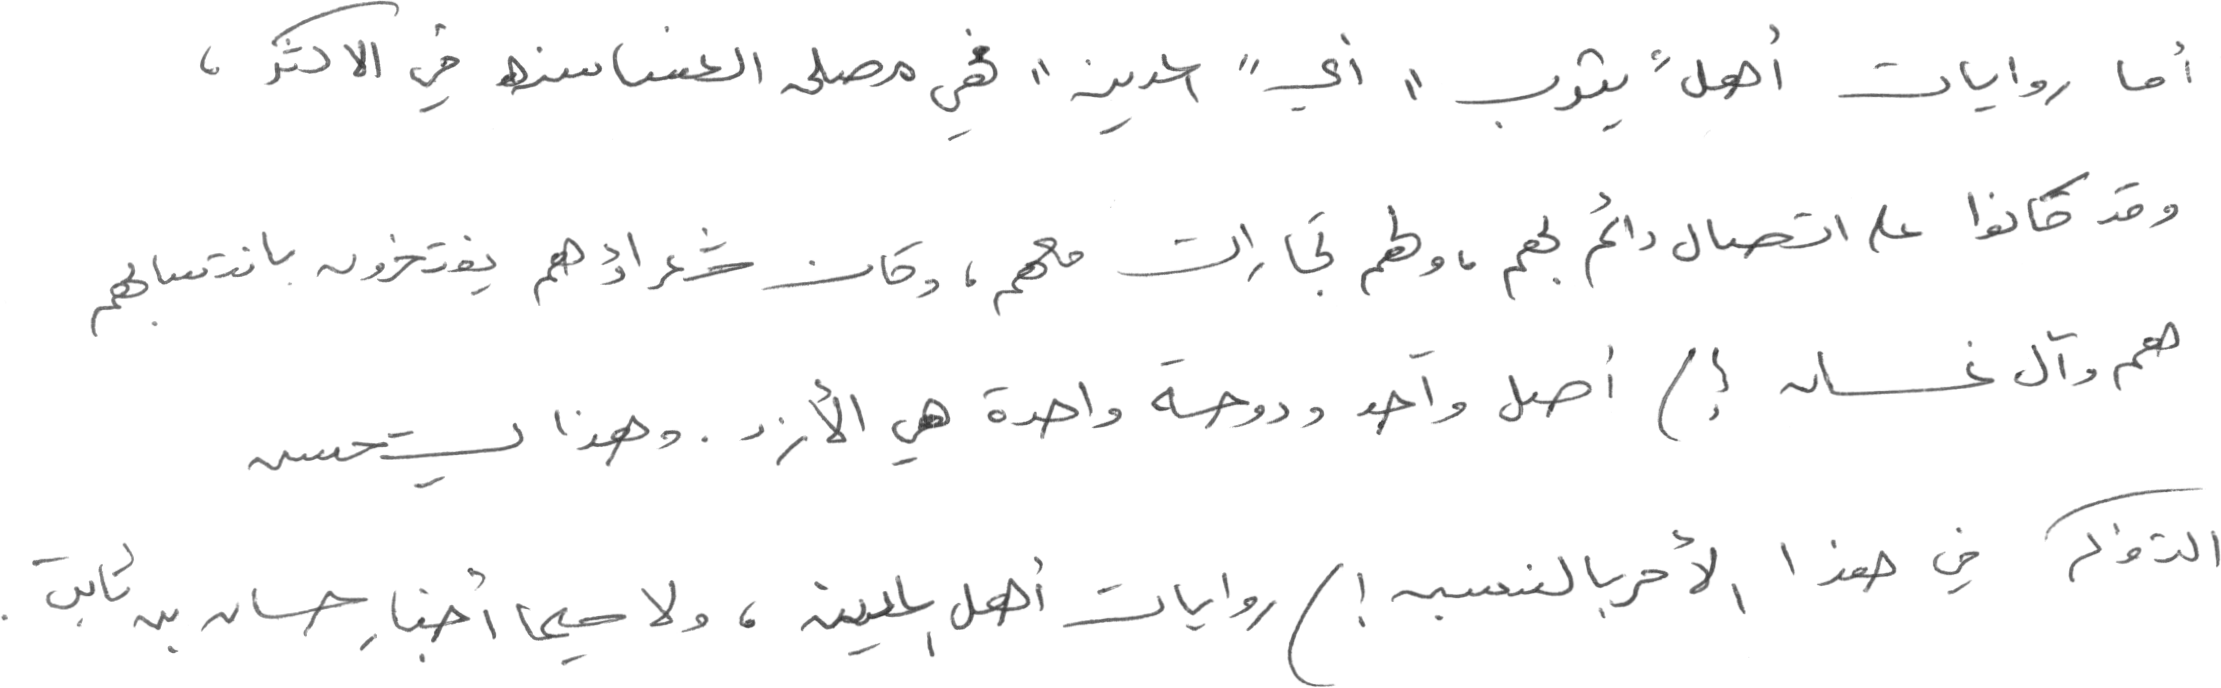 أما روايات أهل "يثرب" أي "المدينة" فهي مصلى الغساسنه في الاكثر،
وقد كانوا على اتصال دائم بهم، ولهم تجارات معهم، وكان شعراؤهم يفتخرون بانتسابهم
هم وآل غسان إلى أصل واحد ودوحة واحدة هي الأزد. وهذا يستحسن
التوكر في هذا الأمر بالنسبه إلى روايات أهل المدينة، ولا سيما أخبار حسان بن ثابت.